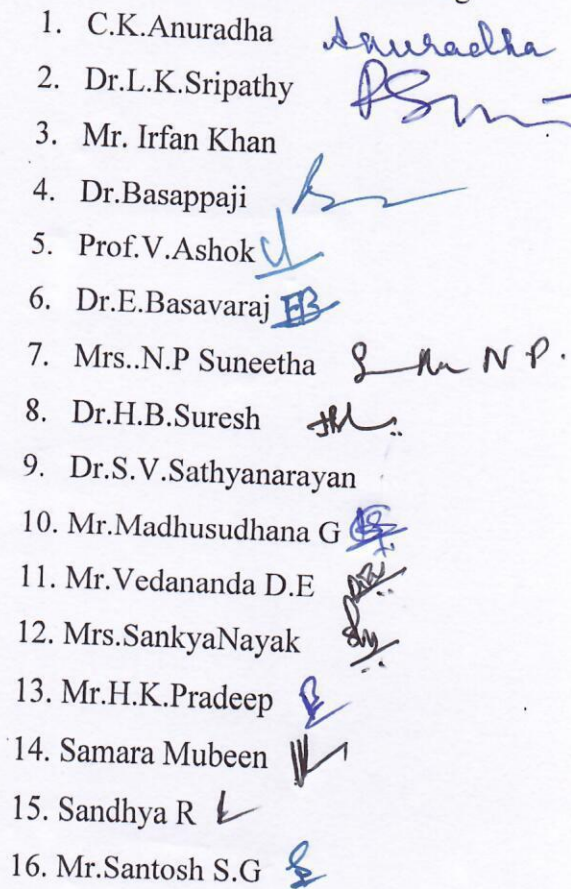 1. C.K.Anuradha Anuradha
2. Dr.L.K.Sripathy
3. Mr. Irfan Khan
4. Dr.Basappaji
5. Prof.V.Ashok
6. Dr.E.Basavaraj EB
7. Mrs..N.P Suneetha N P.
8. Dr.H.B.Suresh
9. Dr.S.V.Sathyanarayan
10. Mr.Madhusudhana G
11. Mr.Vedananda D.E
12. Mrs.SankyaNayak
13. Mr.H.K.Pradeep
14. Samara Mubeen
15. Sandhya R
16. Mr.Santosh S.G